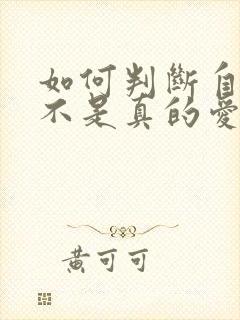 如何判斷自
不是真的愛
黃可可